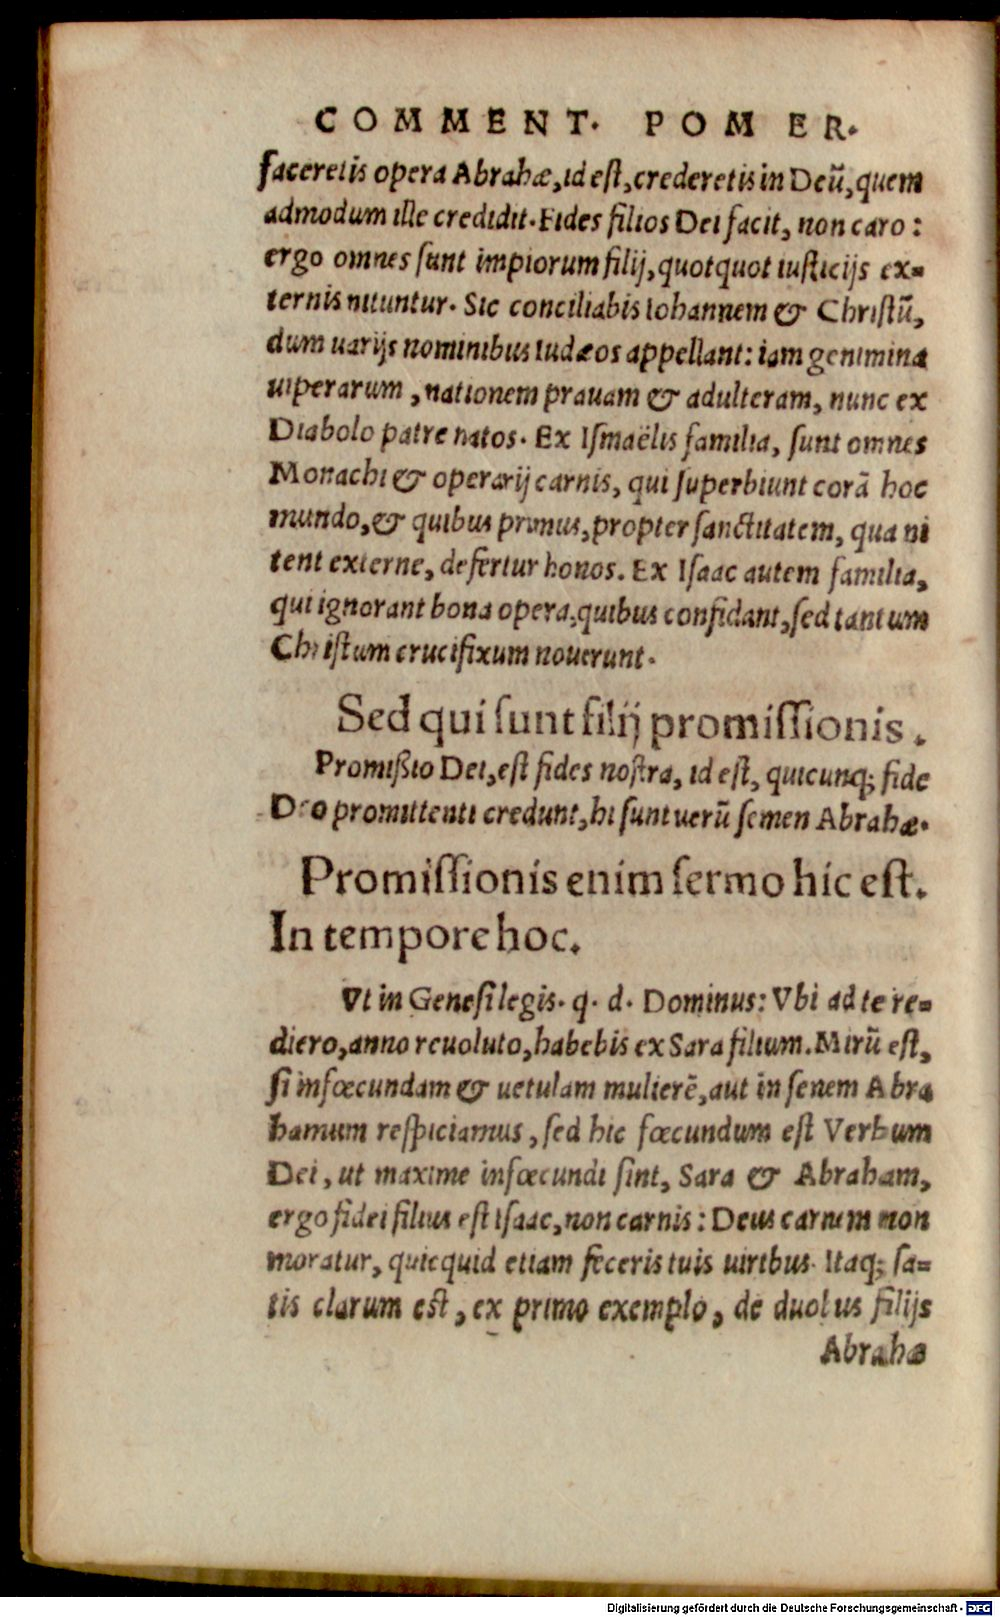 COMMENT. POMER.
faceretis opera Abrahæ, id est, crederetis in Deũ, quem
admodum ille credidit. Fides filios Dei facit, non caro:
ergo omnes sunt impiorum filij, quotquot iusticijs ex=
ternis nituntur. Sic conciliabis Iohannem & Christũ,
dum uarijs nominibus Iudæos appellant: iam genimina
uiperarum, nationem prauam & adulteram, nunc ex
Diabolo patre natos. Ex Ismaëlis familia, sunt omnes
Monachi & operarij carnis, qui superbiunt corã hoc
mundo, & quibus primus, propter sanctitatem, qua ni
tent externe, defertur honos. Ex Isaac autem familia,
qui ignorant bona opera, quibus confidant, sed tantum
Christum crucifixum nouerunt.
Sed qui sunt filij promissionis.
Promißio Dei, est fides nostra, id est, quicunq; fide
Deo promittenti credunt, hi sunt uerũ semen Abrahæ.
Promissionis enim sermo hic est.
In tempore hoc.
Vt in Genesi legis. q. d. Dominus: Vbi ad te re=
diero, anno reuoluto, habebis ex Sara filium. Mirũ est,
si infœcundam & uetulam mulierẽ, aut in senem Abra
hamum respiciamus, sed hic fœcundum est Verbum
Dei, ut maxime infœcundi sint, Sara & Abraham,
ergo fidei filius est Isaac, non carnis: Deus carnem non
moratur, quicquid etiam feceris tuis uiribus. Itaq; sa=
tis clarum est, ex primo exemplo, de duobus filijs
Abrahæ
Digitalisierung gefördert durch die Deutsche Forschungsgemeinschaft - DFG